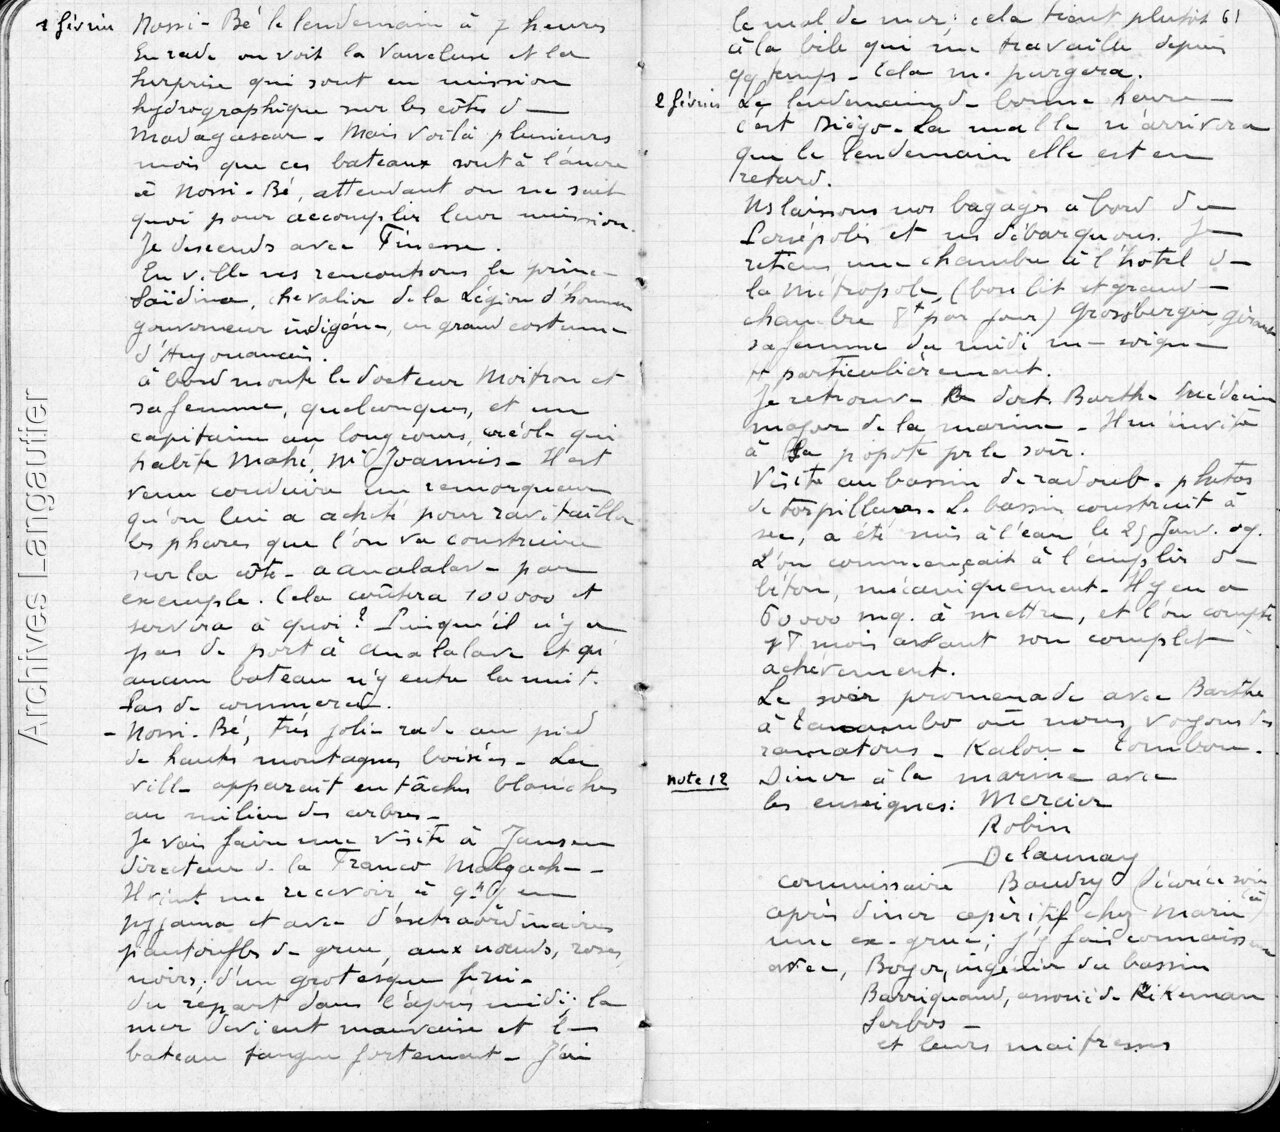 1 février Nossi-Bé le lendemain à 7 heures
En rade on voit la Vaucluse et la
Surprise qui sont en mission
hydrographique sur les côtes de
Madagascar - Mais voilà plusieurs
mois que ces bateaux sont à l'ancre
à Nossi-Bé, attendant on ne sait
quoi pour accomplir leur mission.
Je descends avec Finesse.
En ville ns rencontrons le prince
Saïdina, chevalier de la Légion d'honneur
gouverneur indigène, en grand costume
d'Anjouanais.
à bord monte le docteur Moitron et
sa femme, quelconques, et un
capitaine au long cours, créole qui
habite Mahé, Mr Joannis - Il est
venu conduire un remorqueur
qu'on lui a acheté pour ravitailler
les phares que l'on va construire
sur la côte - à Analalave par
exemple. Cela coûtera 100000 et
servira à quoi? Puisqu'il n'y a
pas de port à Analalave et qu'
aucun bateau n'y entre la nuit.
Pas de commerce.
- Nossi-Bé, très jolie rade au pied
de hautes montagnes boisées - La
ville apparaît en tâches blanches
au milieu des arbres -
Je vais faire une visite à Jansen
directeur de la Franco Malgache -
Il vient me recevoir à 9h ½ en
pyjama et avec d'extraordinaires
pantoufles de grue, aux nœuds, roses
noirs, d'un grotesque fini -
On repart dans l'après midi; la
mer devient mauvaise et le
bateau tangue fortement - J'ai
61
le mal de mer: cela tient plutôt
à la bile qui me travaille depuis
qq temps - Cela me purgera.
2 février Le lendemain de bonne heure -
c'est Diégo - La malle n'arrivera
que le lendemain elle est en
retard.
Ns laissons nos bagages à bord du
Persépolis et ns débarquons. Je
retiens une chambre à l'hôtel de
la Métropole (bon lit et grande
chambre 8f par jour) Grossberger, gérant
sa femme du midi me soigne
tt particulièrement.
Je retrouve le doct. Barthe médecin
major de la marine - Il m'invite
à la popote pr le soir.
Visite au bassin de radoub - photos
de torpilleurs - Le bassin construit à
sec, a été mis à l'eau le 25 Janv. 09.
L'on commençait à l'emplir de
béton, mécaniquement - Il y en a
60000 mq. à mettre, et l'on compte
18 mois avant son complet
achèvement.
Le soir promenade avec Barthe
à Tanambo où nous voyons des
ramatous - Kalou - Tombou -
note 12 Diner à la marine avec
les enseignes: Mercier
Robin
Delaunay
commissaire Baudry (décorée soie
après diner apéritif chez Marie
une ex-grue; j'y fais connaissance
avec, Boyer, ingénieur du bassin
Barriquand, associé de Rikeman
Serbos -
et leurs maîtresses
Archives Langautier